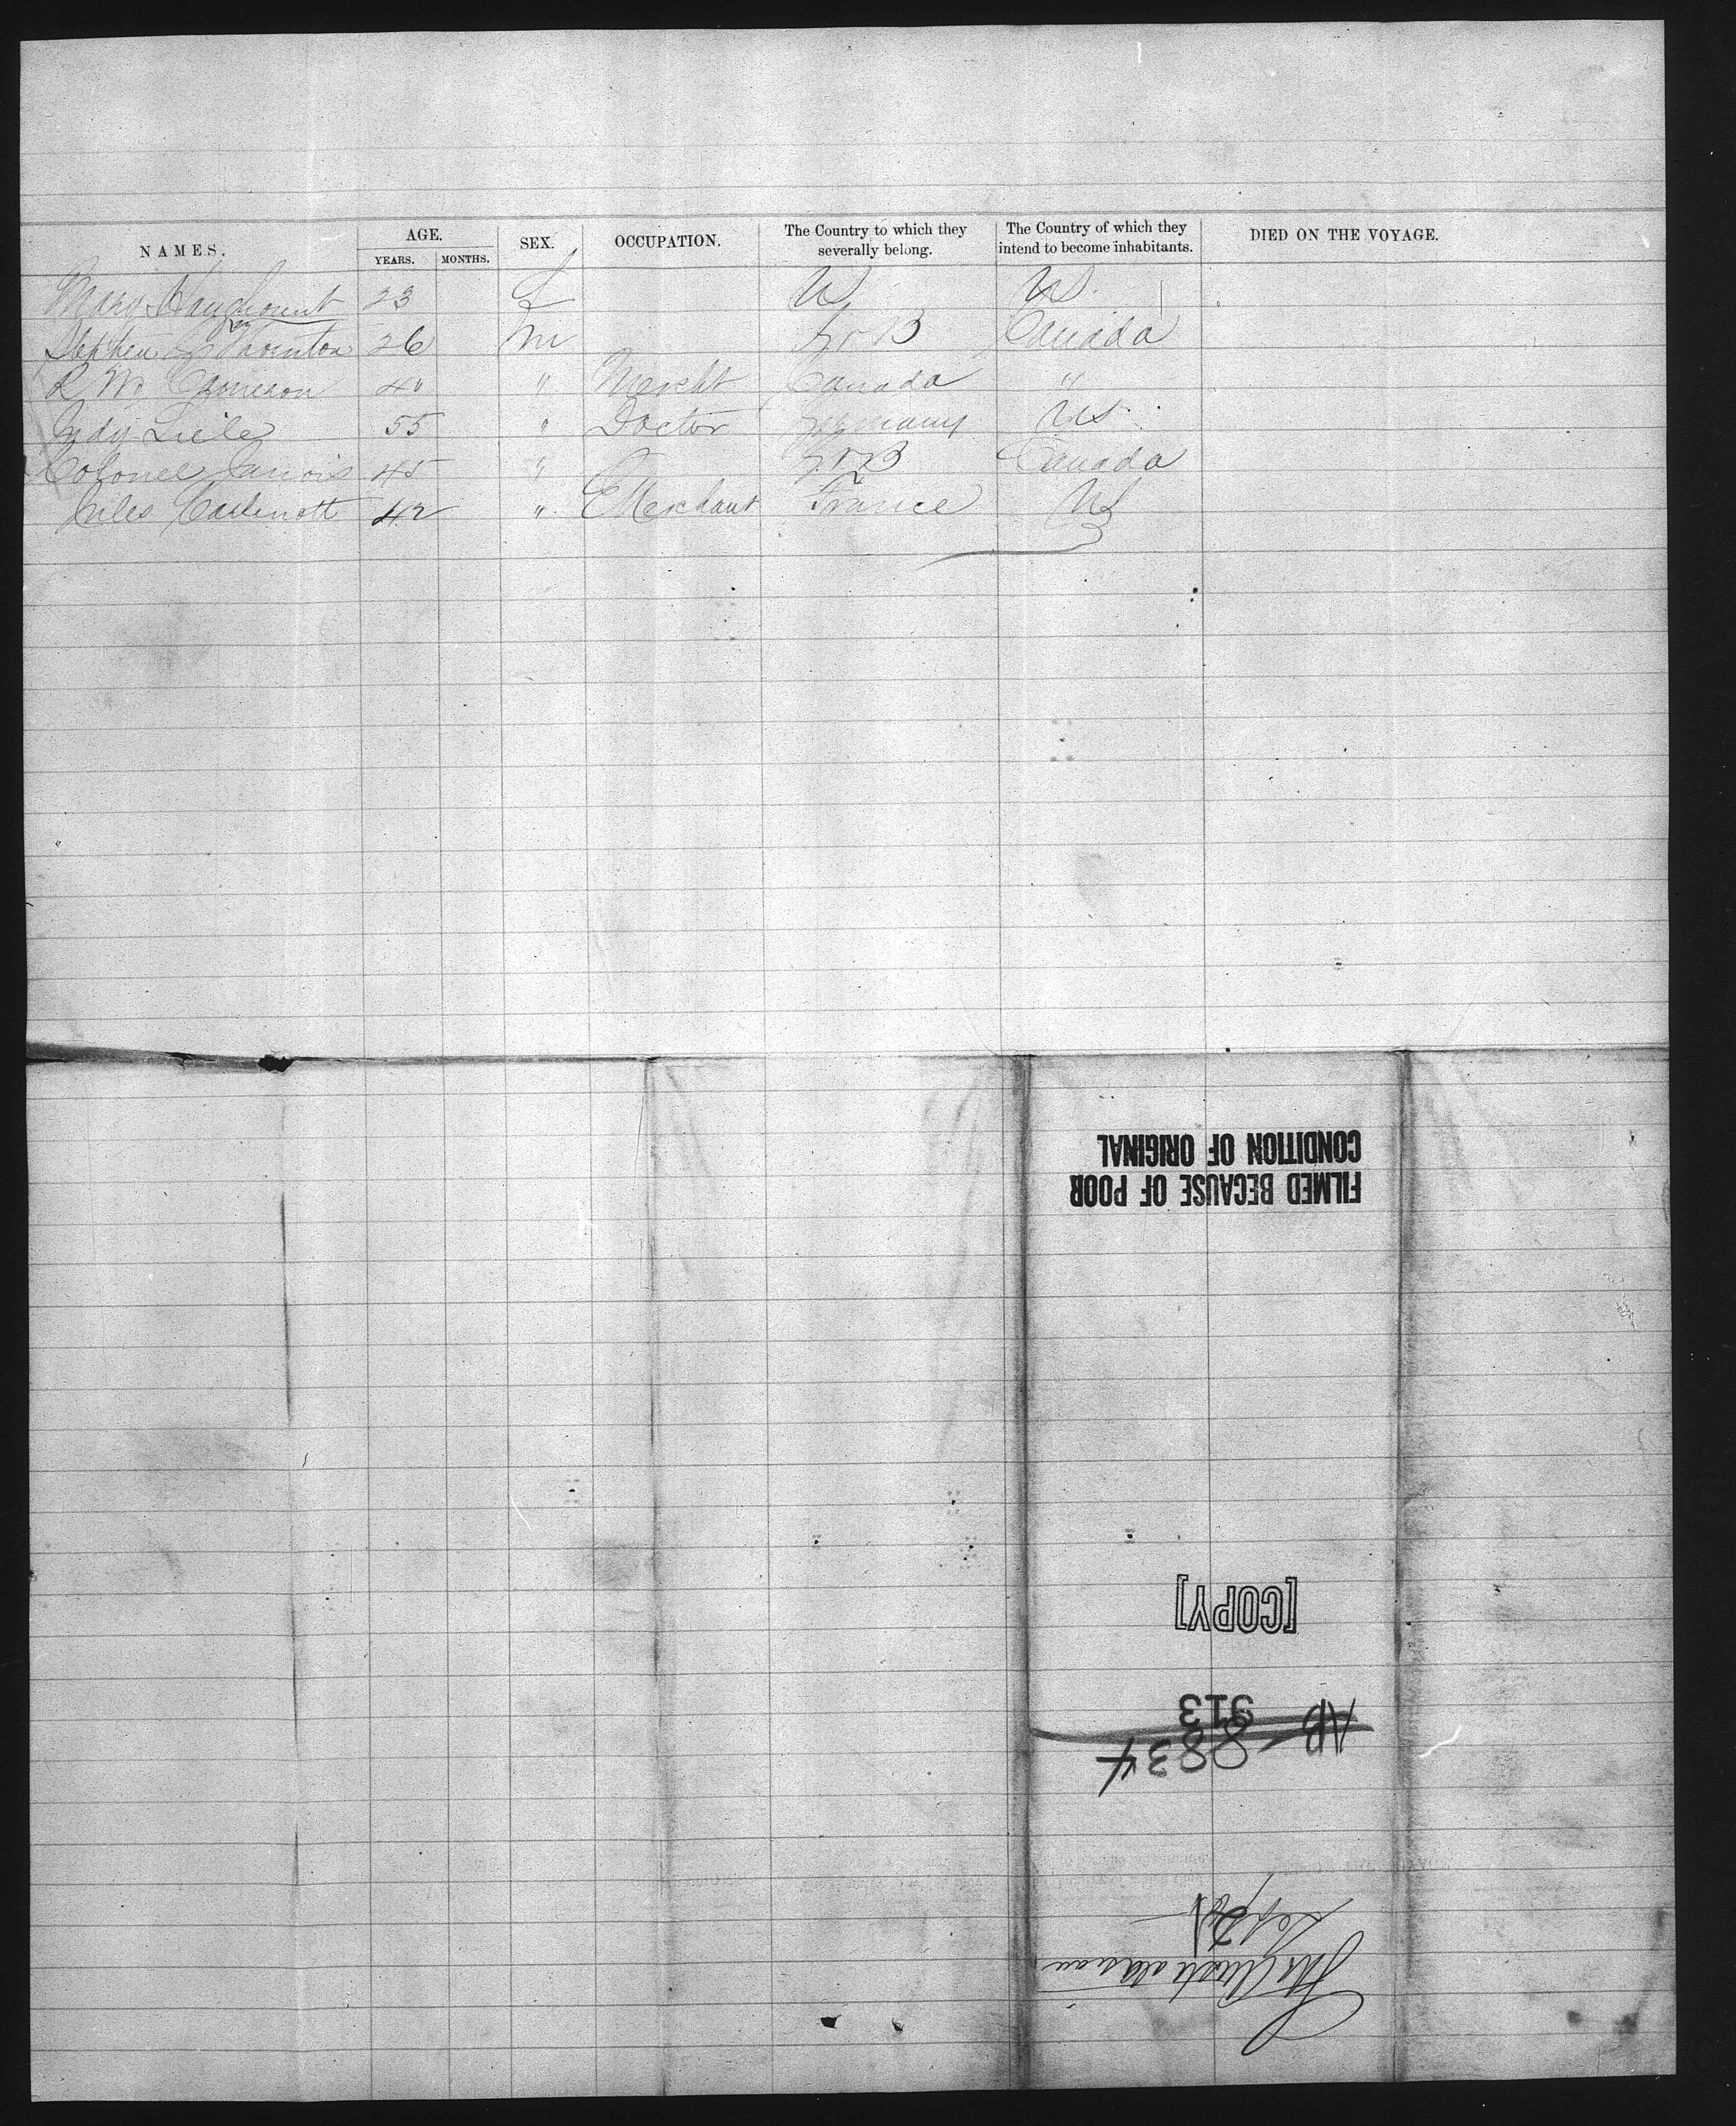 NAMES. AGE. SEX. OCCUPATION. The Country to which they severally belong. The Country of which they intend to become inhabitants. DIED ON THE VOYAGE.
YEARS. MONTHS.
Mary 23 f U. US.
Stephen Thornton 26 m Gr B Canada
R W Cameron 40 " Mercht Canada "
55 " Doctor Germany US.
Colonel 45 " Gr B Canada
Jules 42 " Merchant France US
FILMED BECAUSE OF POOR
CONDITION OF ORIGINAL
[COPY]
313
AB 8834
Str Australasian
Sep 21